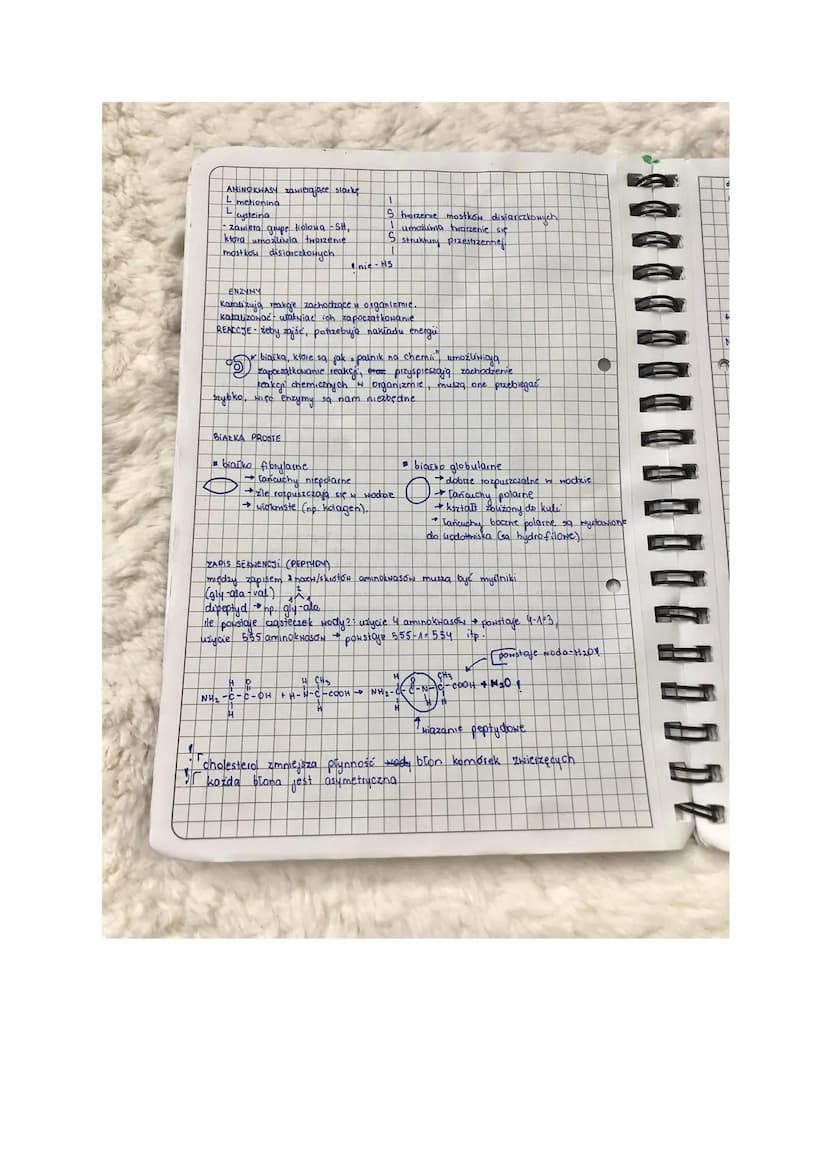 AMINOKWASY zawierające siarkę
L metionina
L cysteina
- zawiera grupę tiolową -SH,
która umożliwia tworzenie
mostków disiarczkowych
|
S tworzenie mostków disiarczkowych
| umożliwia tworzenie się
S struktury przestrzennej
|
! nie - HS
ENZYMY
Katalizują reakcje zachodzące w organizmie.
Katalizować - ułatwiać ich zapoczątkowanie
REAKCJE - żeby zajść, potrzebują nakładu energii
białka, które są jak „palnik na chemii", umożliwiają
zapoczątkowanie reakcji, przyspieszają zachodzenie
reakcji chemicznych w organizmie, muszą one przebiegać
szybko, więc enzymy są nam niezbędne
BIAŁKA PROSTE
białko fibrylarne
→ łańcuchy niepolarne
→ źle rozpuszczają się w wodzie
→ włókniste (np. kolagen).
białko globularne
→ dobrze rozpuszczalne w wodzie
→ łańcuchy polarne
→ kształt zbliżony do kuli
→ łańcuchy boczne polarne są wystawione
do środowiska (są hydrofilowe).
ZAPIS SEKWENCJI (PEPTYDY)
między zapisem nazw/skrótów aminokwasów muszą być myślniki
(gly-ala-val)
dipeptyd → np. gly-ala
ile powstaje cząsteczek wody?: użycie 4 aminokwasów → powstaje 4-1=3,
użycie 555 aminokwasów → powstaje 555-1=554 itp.
powstaje woda-H2O!
H O H CH3 H O CH3
NH2-C-C-OH + H-N-C-COOH → NH2-C-C-N-C-COOH + H2O!
H H H H H
wiązanie peptydowe
! cholesterol zmniejsza płynność wody błon komórek zwierzęcych
! każda błona jest asymetryczna